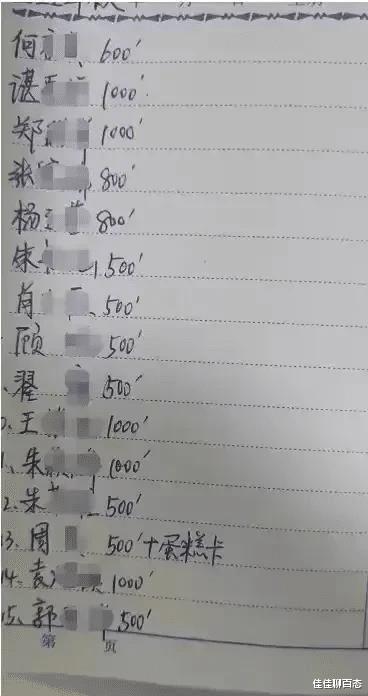 何 600'
谌 1000'
郑 1000'
张 800'
杨 800'
朱 500'
肖 500'
顾 500'
翟 500'
0.王 1000'
1.朱 1000'
2.朱 500'
13.周 500'+蛋糕卡
14.袁 1000'
15.郭 500'
第 页
佳佳聊百态